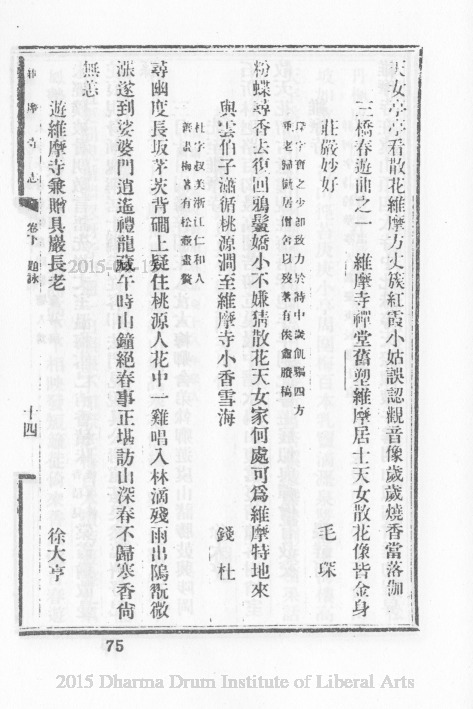 天女亭亭看散花維摩方丈簇紅霞小姑誤認觀音像歲歲燒香當落伽
三橋春遊曲之一　維摩寺禪堂舊塑維摩居士天女散花像皆金身
莊嚴妙好　毛琛
琛字寶之少卽致力於詩中歲飢驅四方
垂老歸僦居僧舍以歿著有俟盦賸稿
粉蝶尋香去復回鴉鬟嬌小不嫌猜散花天女家何處可爲維摩特地來
與雲伯子瀟循桃源澗至維摩寺小香雪海　錢杜
杜字叔美浙江仁和人
善畫梅著有松壺畫贅
尋幽度長坂茅茨背磵上疑住桃源人花中一雞唱入林滴殘雨出隖翫微
漲遂到娑婆門逍遙禮龍藏午時山鐘絕春事正堪訪山深春不歸寒香尙
無恙
遊維摩寺兼贈具嚴長老　徐大亨
維摩寺志　卷下　題詠　十四
75
2015-03-13
2015 Dharma Drum Institute of Liberal Arts